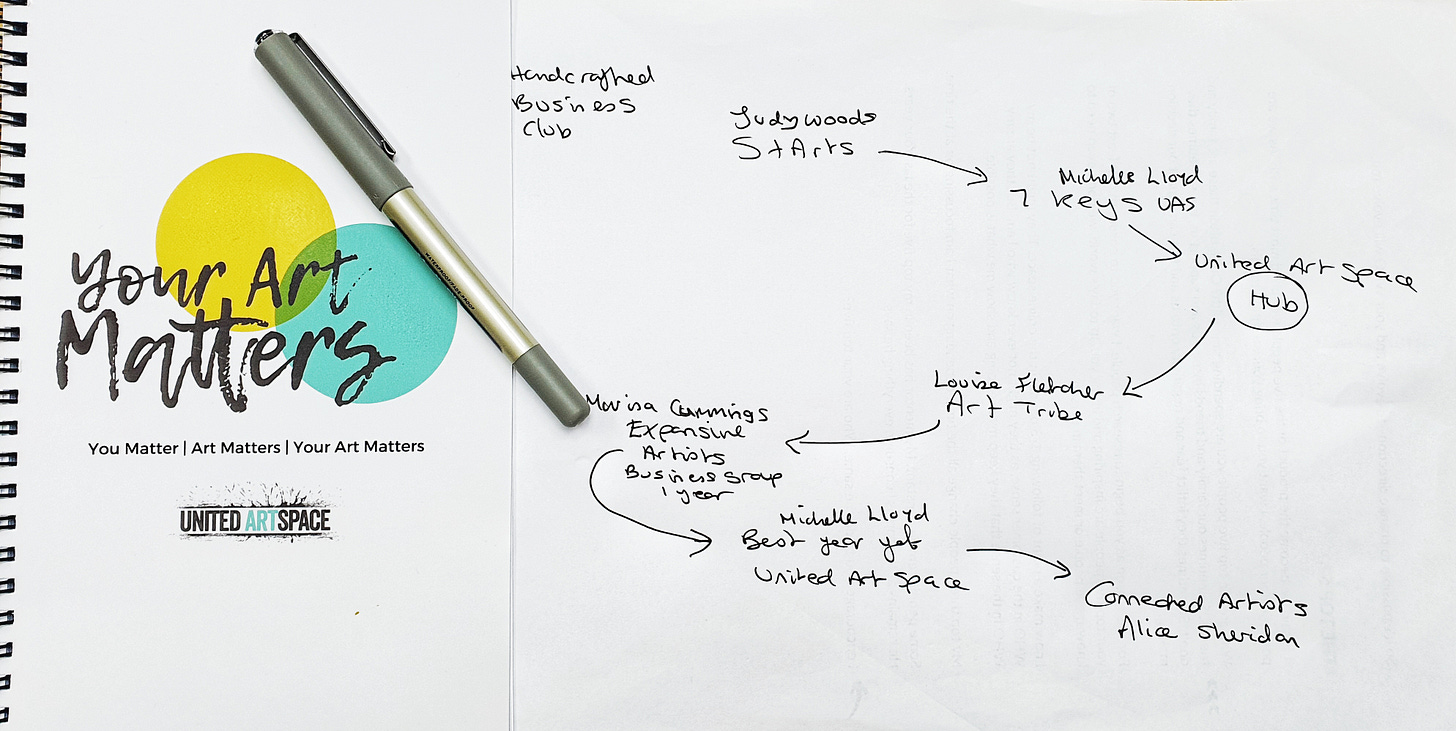 Your Art
Matters
You Matter | Art Matters | Your Art Matters
UNITED ARTSPACE
Handcrafted
Business
Club
Judy Woods
StArts
Michelle Lloyd
7 Keys UAS
United Art Space
Hub
Louise Fletcher
Art Tribe
Marisa Cummings
Expansive
Artists
Business Group
1 year
Michelle Lloyd
Best year yet
United Art Space
Connected Artists
Alice Sheridan